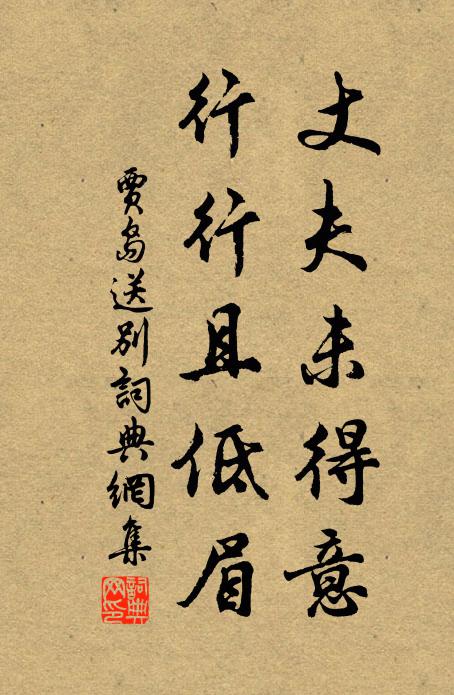 丈夫未得意
行行且低眉
賈島送別詞典網集
詞典網印